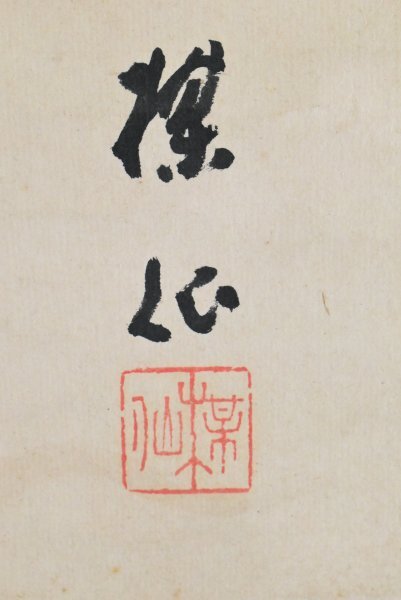 楳仙
楳仙